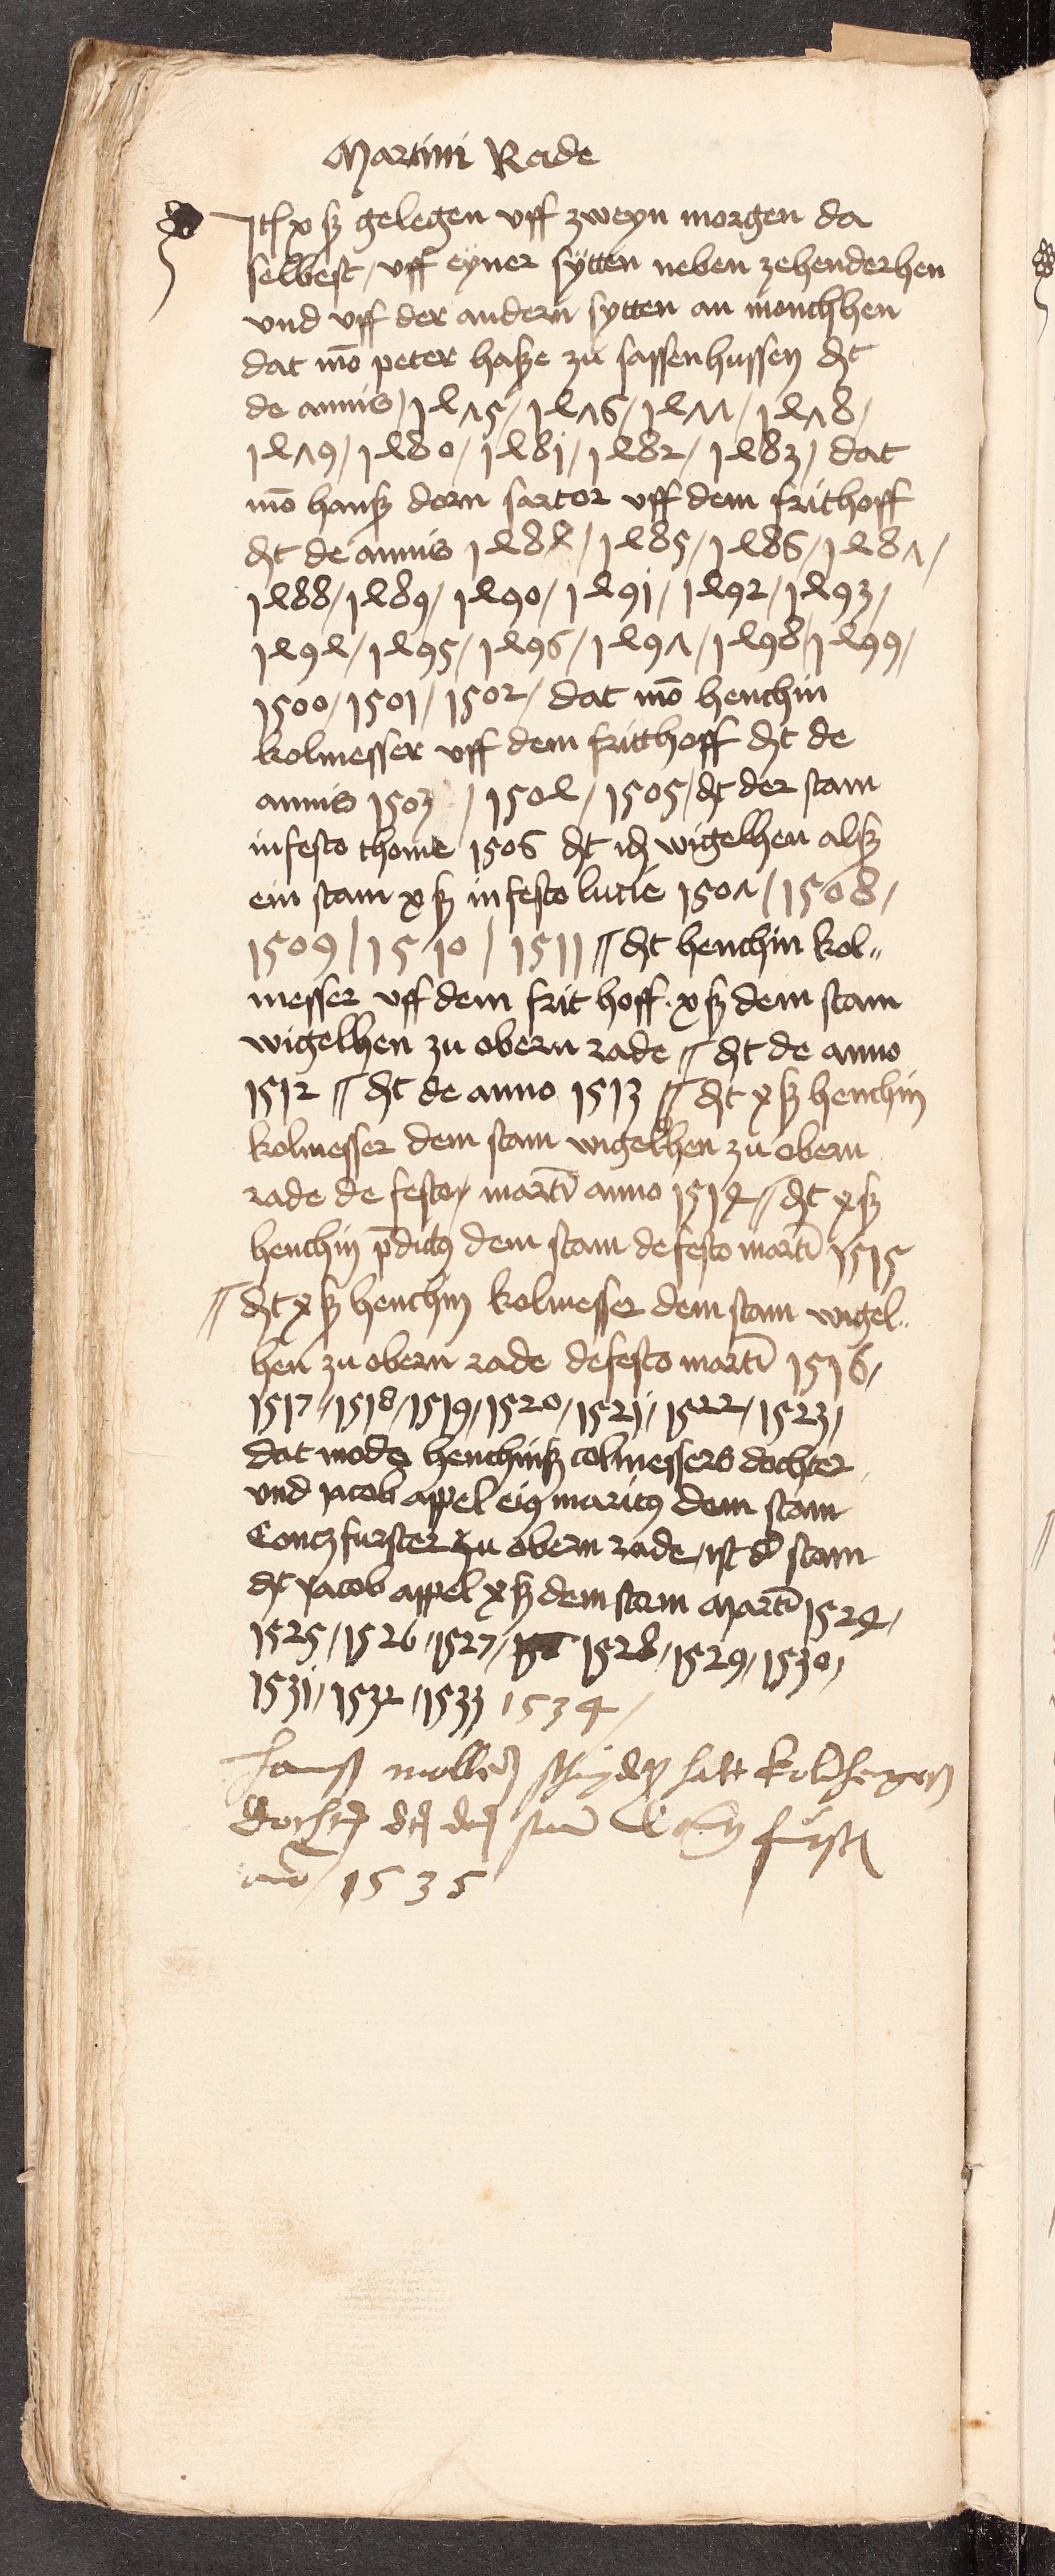 Martini Rade
Jt x ß gelegen vff zweyn morgen da
selbest / vff eyner sytten neben zehenderhen
vnd vff der andern sytten an monchhen
dat mō peter haße zu sassenhussen dt
de annis / 1475 / 1476 / 1477 / 1478 /
1479 / 1480 / 1481 / 1482 / 1483 / dat
mō hanß dorn sartor vff dem frithoff
dt de annis 1484 / 1485 / 1486 / 1487 /
1488 / 1489 / 1490 / 1491 / 1492 / 1493 /
1494 / 1495 / 1496 / 1497 / 1498 / 1499 /
1500 / 1501 / 1502 / dat mō henchin
kolmesser vff dem fritthoff dt de
annis 1503 / 1504 / 1505 / dt der stam
in festo thome 1506 dt wigelhen alß
ein stam x ß in festo lucie 1507 / 1508 /
1509 / 1510 / 1511 // dt henchin kol„
messer vff dem frit hoff · x ß dem stam
wigelhen zu obern rade // dt de anno
1512 // dt de anno 1513 // dt x ß henchin
kolmesser dem stam wigelhen zu obern
rade de festo martī anno 1514 // dt x ß
henchin p̄dictus dem stam de festo martī 1515
// dt x ß henchin kolmesser dem stam wigel„
hen zu obern rade de festo martī 1516 /
1517 / 1518 / 1519 / 1520 / 1521 / 1522 / 1523 /
dat modo henchinß colmessers dochter
vnd jacob appel eius maritus dem stam
Contz furster zu obern rade / ist d stam
dt Jacob appel x ß dem stam Martī 1524 /
1525 / 1526 / 1527 / 1528 / 1529 / 1530 /
1531 / 1532 / 1533 1534 /
Hanß hatt
dem stam
1535